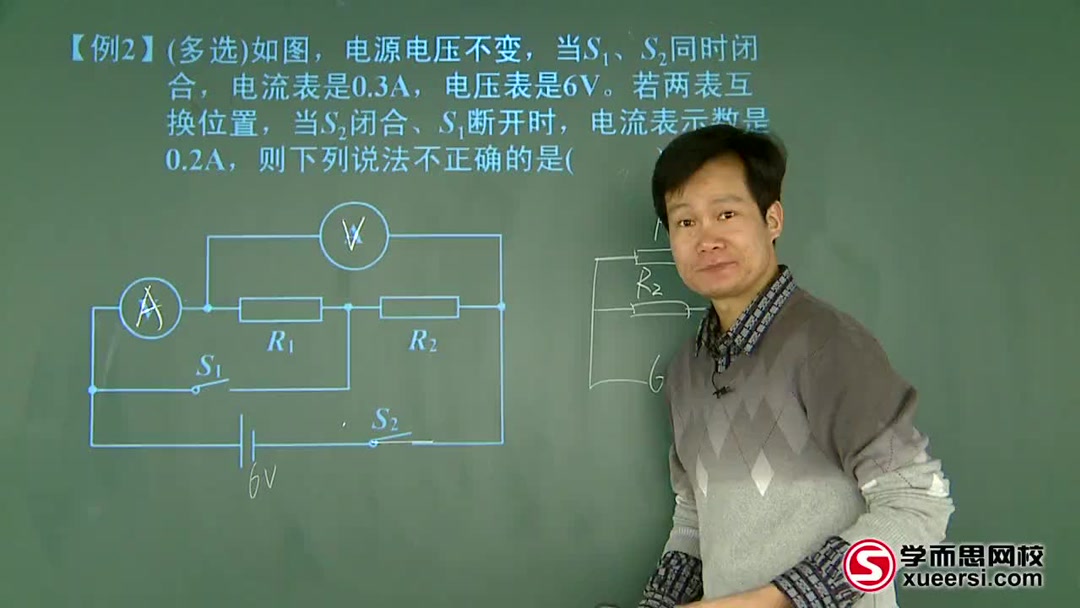 【例2】(多选)如图，电源电压不变，当S₁、S₂同时闭
合，电流表是0.3A，电压表是6V。若两表互
换位置，当S₂闭合、S₁断开时，电流表示数是
0.2A，则下列说法不正确的是(
V
A
R₁
R₂
S₁
S₂
6V
R₂
6
学而思网校
xueersi.com